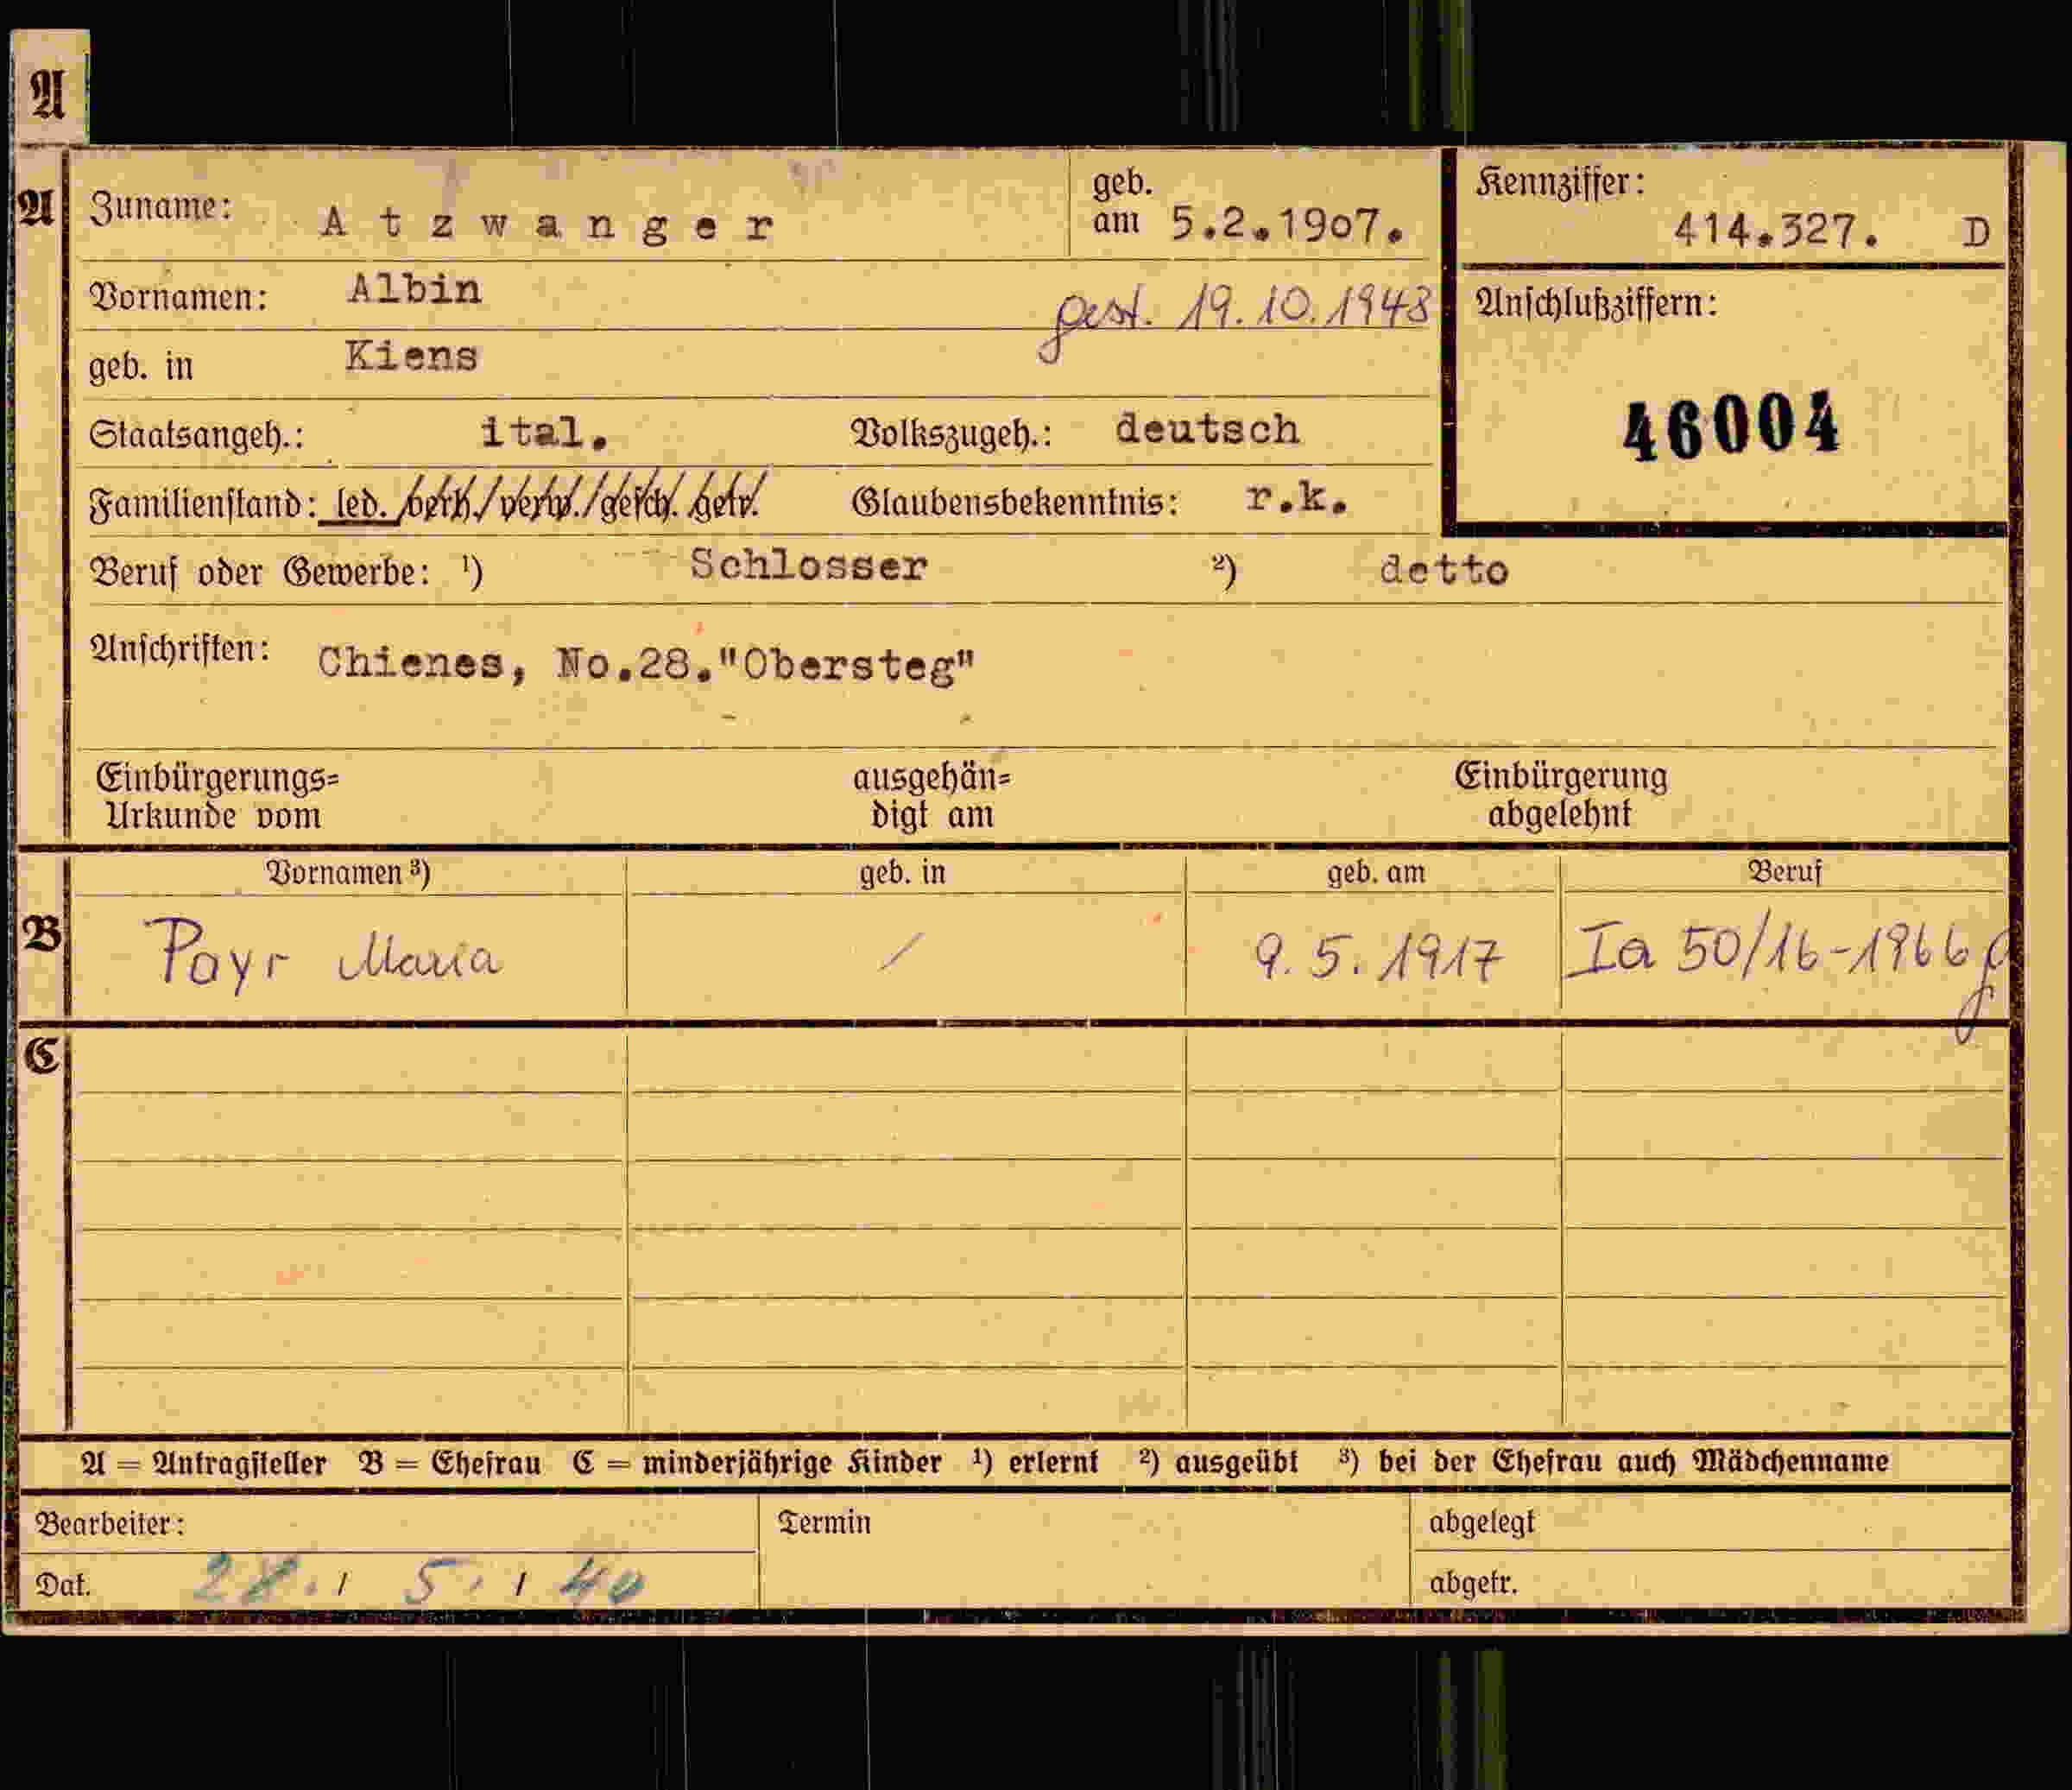 A
A Zuname: Atzwanger geb. am 5.2.1907. Kennziffer: 414.327. D
Vornamen: Albin gest. 19.10.1943 Anschlußziffern:
geb. in Kiens
46004
Staatsangeh.: ital. Volkszugeh.: deutsch
Familienstand: led. /verh./verw./gesch. getr. Glaubensbekenntnis: r.k.
Beruf oder Gewerbe: ¹) Schlosser ²) detto
Anschriften: Chienes, No.28."Obersteg"
Einbürgerungs= ausgehän= Einbürgerung
Urkunde vom digt am abgelehnt
Vornamen ³) geb. in geb. am Beruf
B Payr Maria / 9.5.1917 Ia 50/16-1966
C
A = Antragsteller B = Ehefrau C = minderjährige Kinder ¹) erlernt ²) ausgeübt ³) bei der Ehefrau auch Mädchenname
Bearbeiter: Termin abgelegt
Dat. 28./ 5. / 40 abgetr.